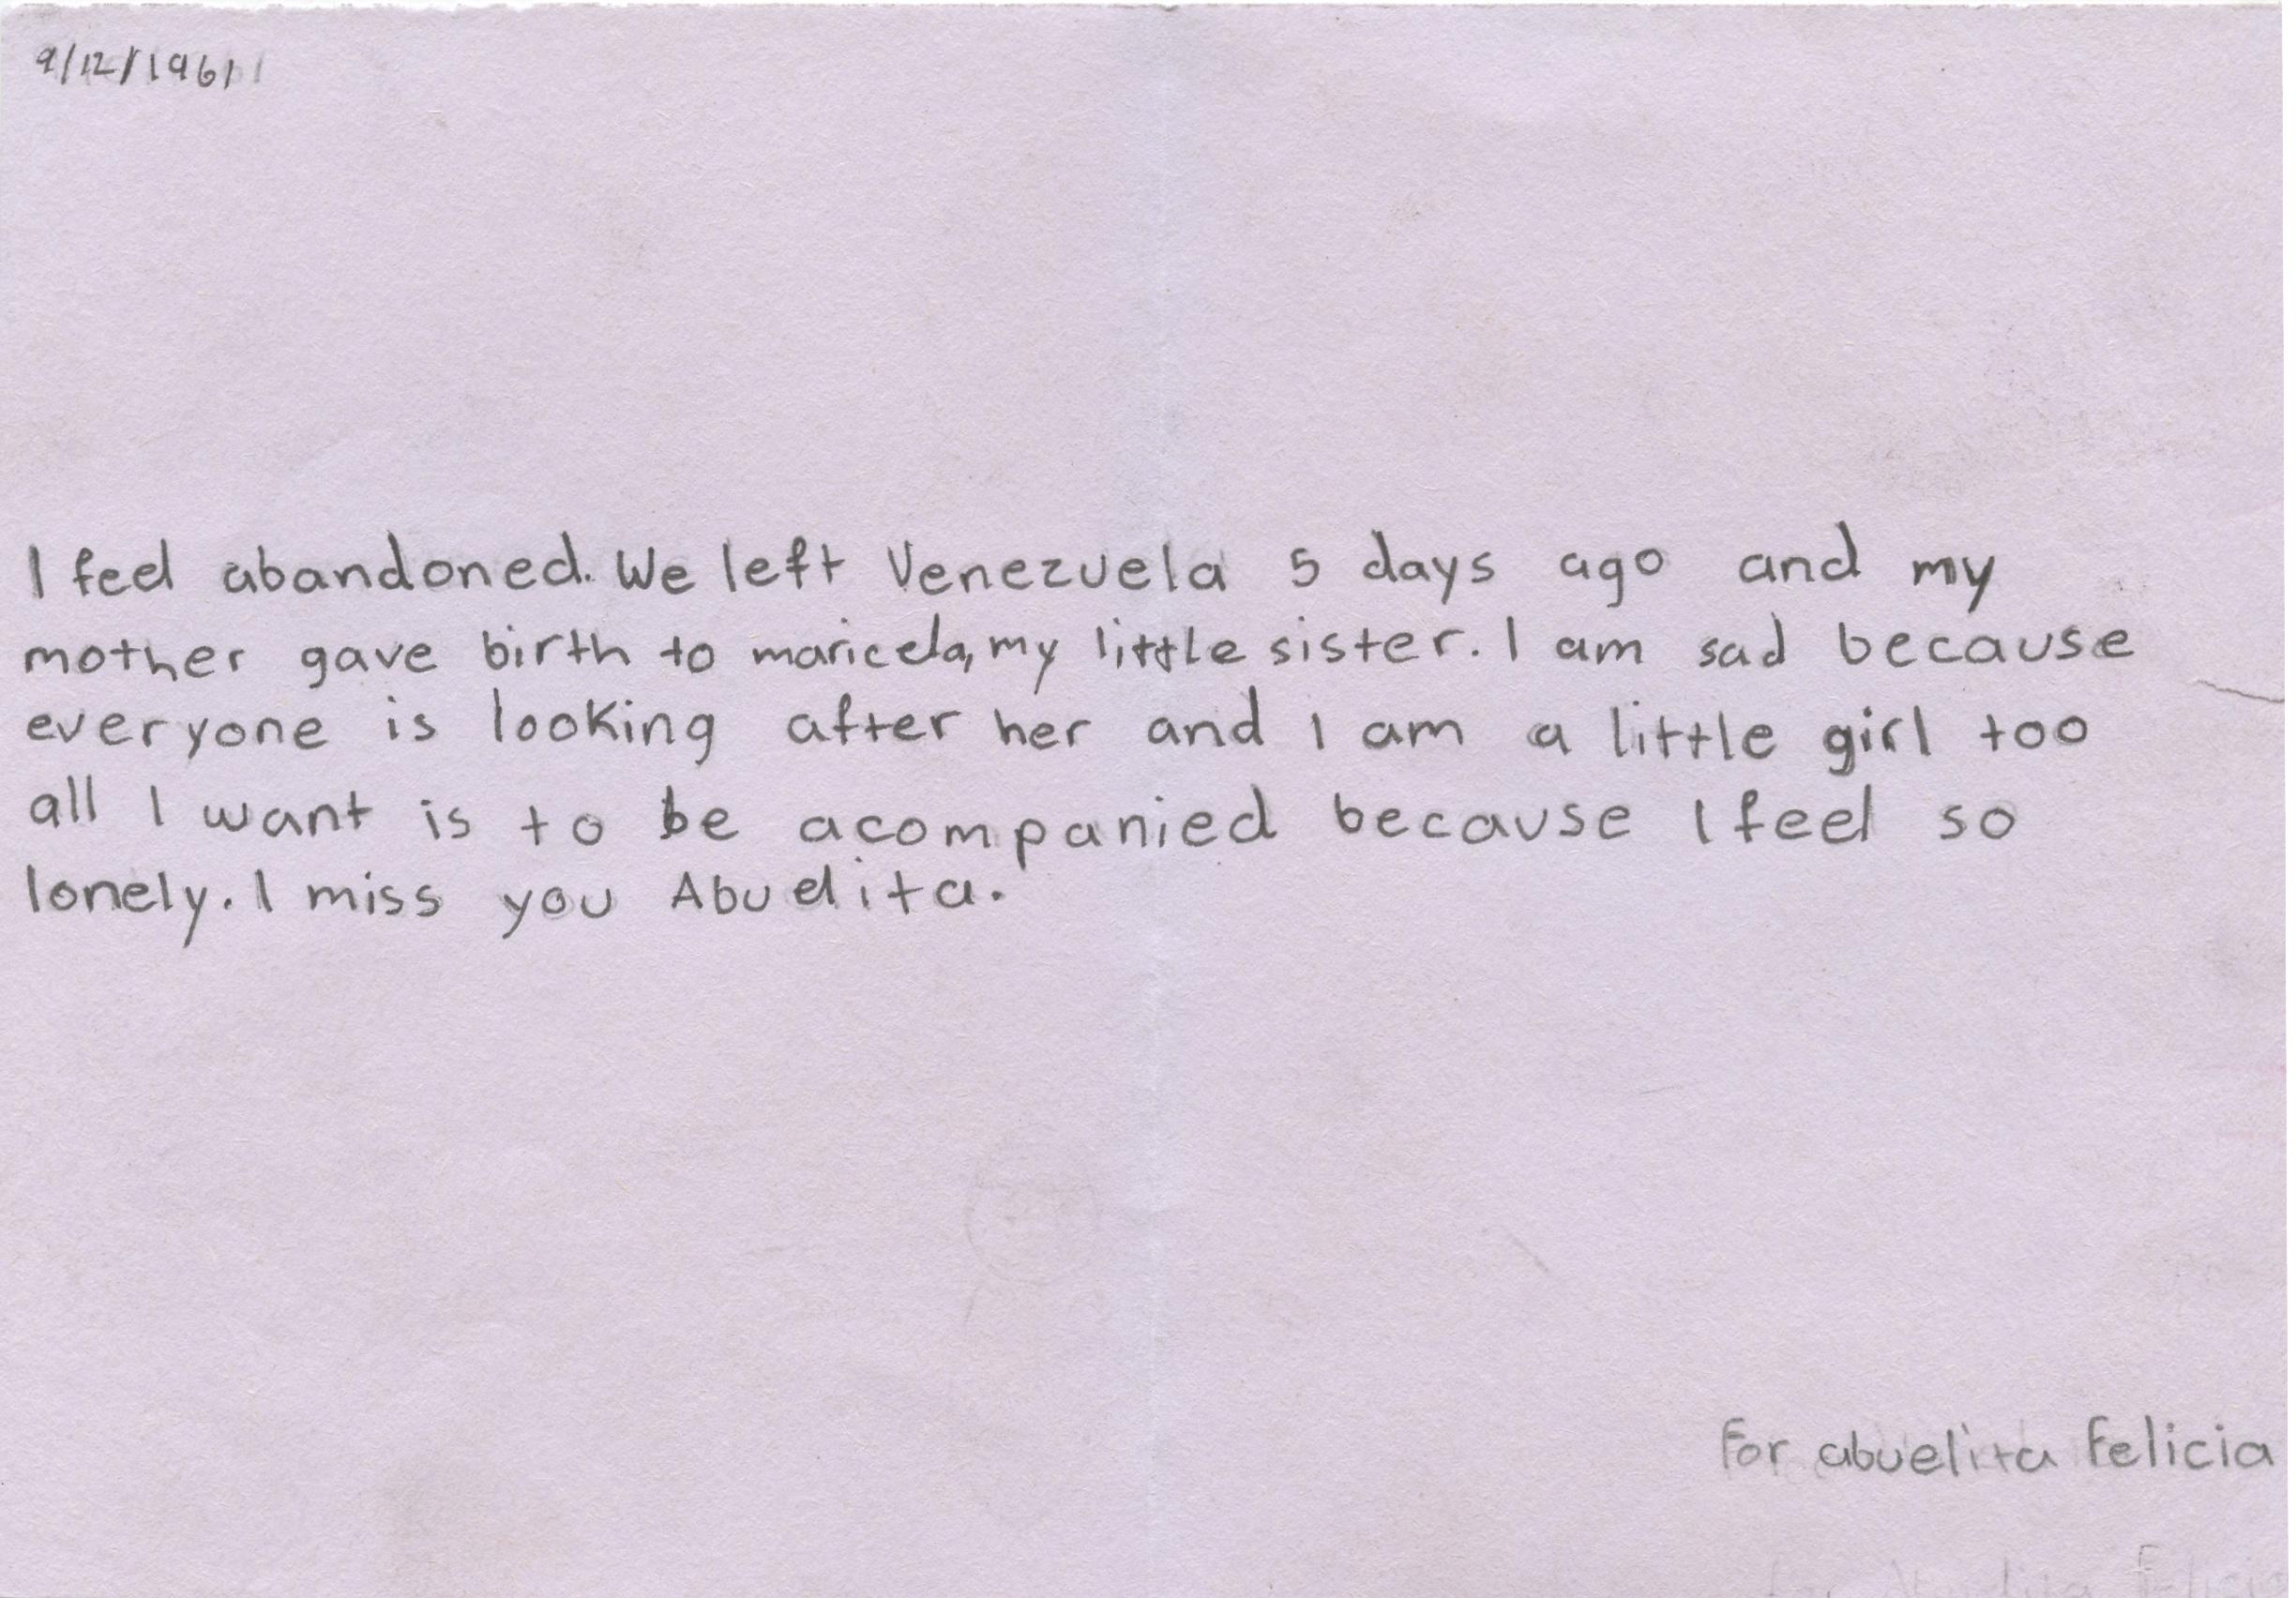 9/12/1961
I feel abandoned. We left Venezuela 5 days ago and my
mother gave birth to maricela, my little sister. I am sad because
everyone is looking after her and I am a little girl too
all I want is to be acompanied because I feel so
lonely. I miss you Abuelita.
For abuelita Felicia
for Abuelita Felicia